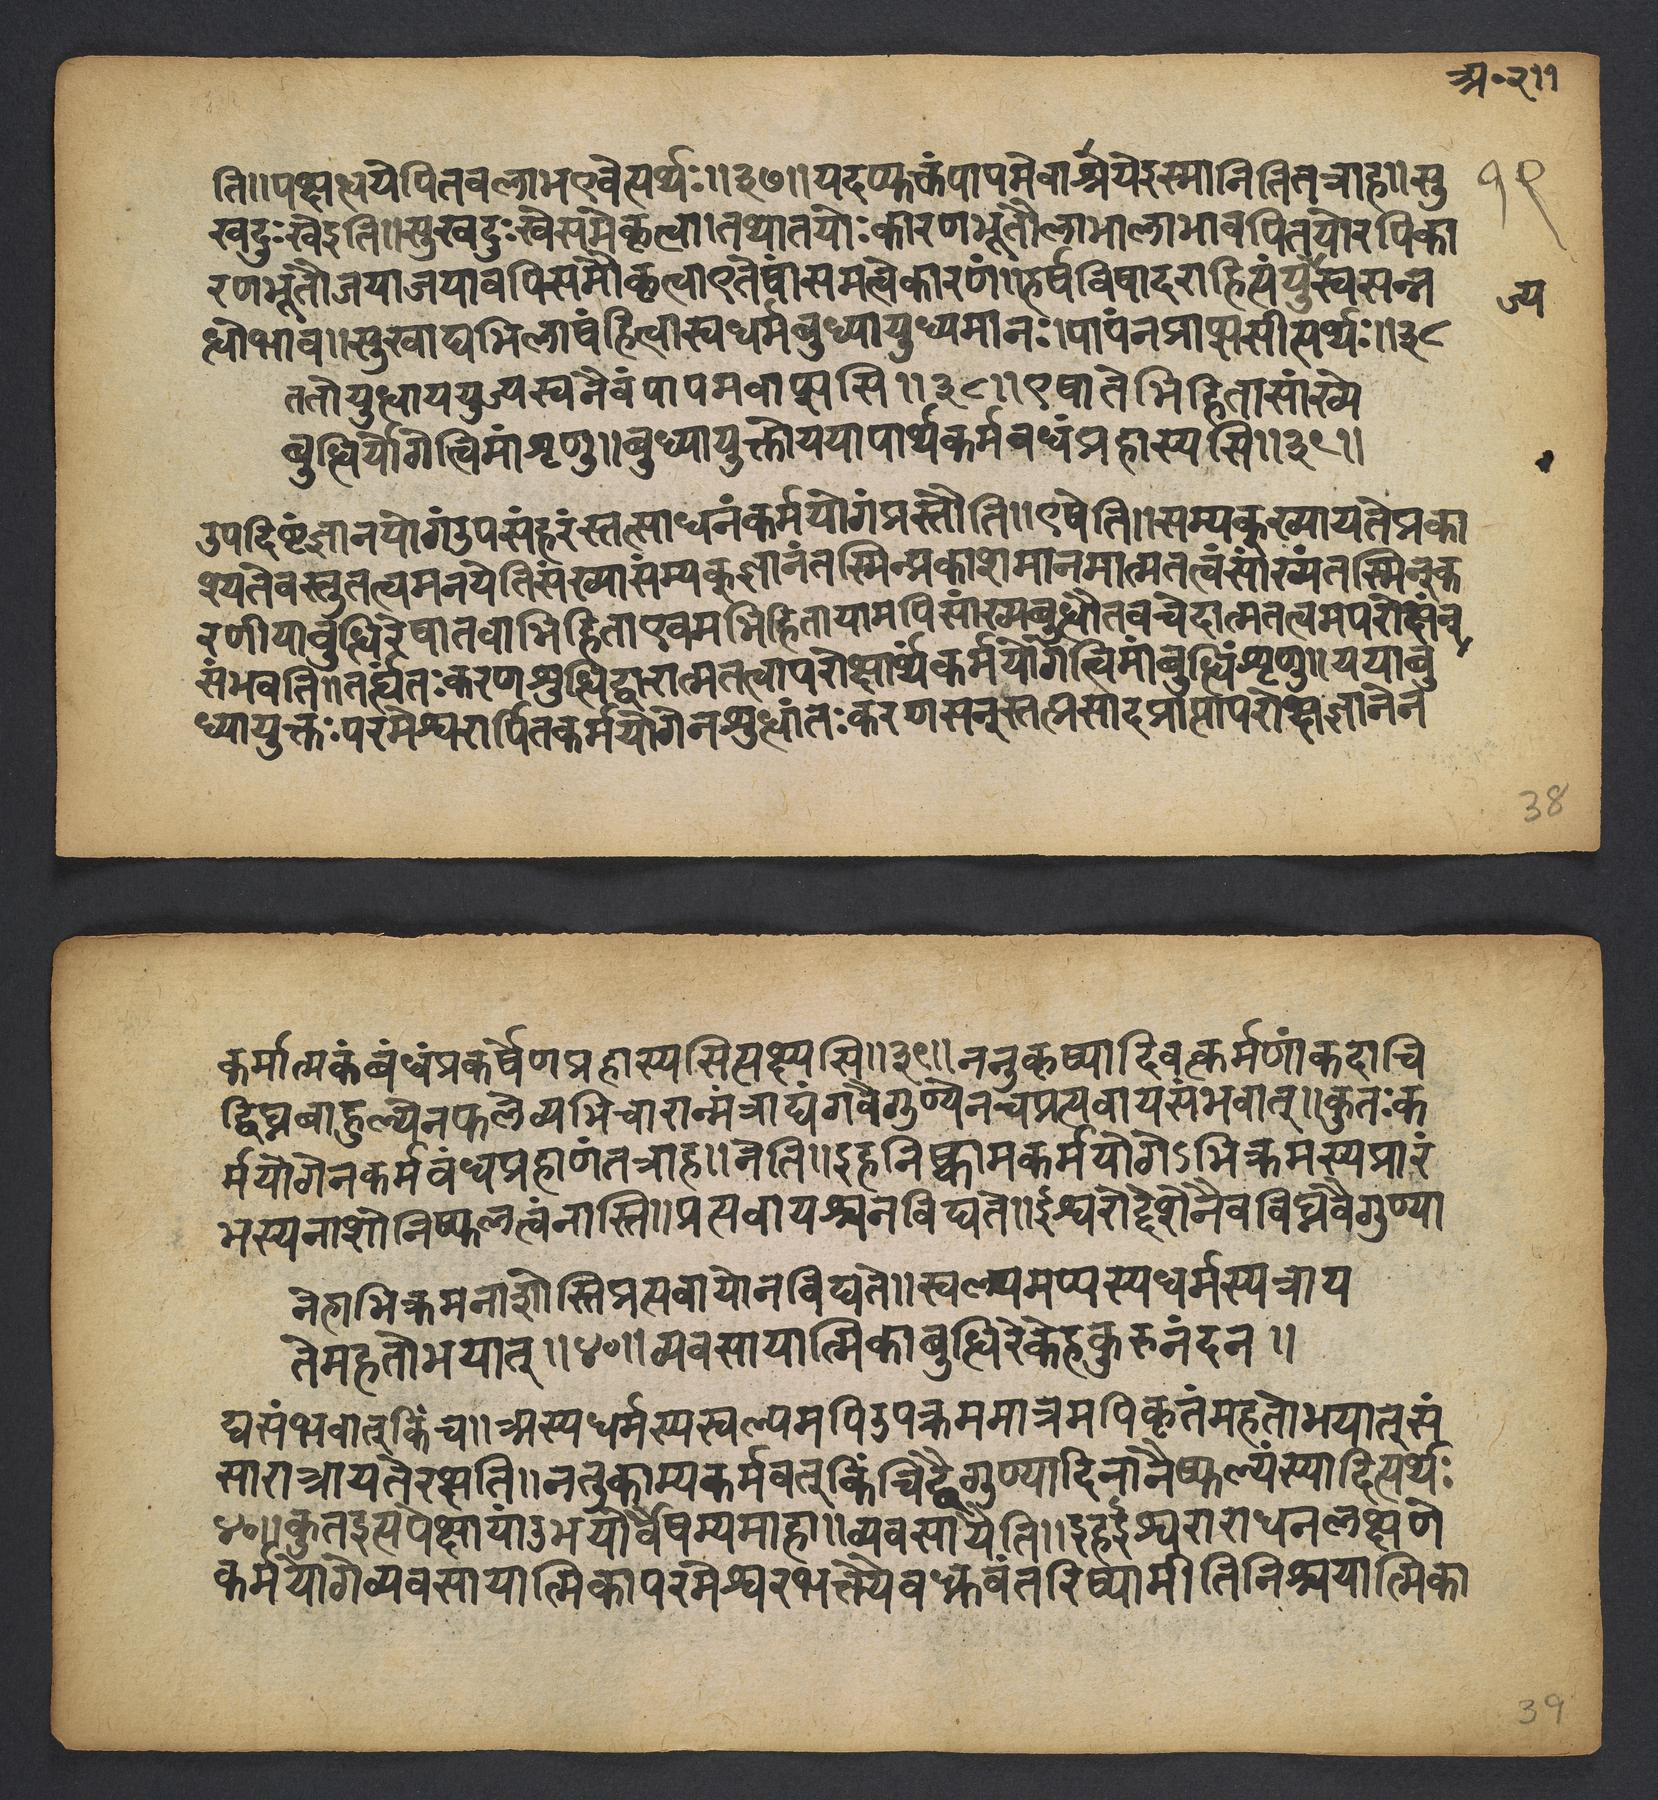 अ॰२॥
ति॥पक्षद्वयेपितवलाभएवेत्यर्थः॥३७॥यदप्युक्तंपापमेवाश्रयेदस्मानितितत्राह॥सु
१९
खदुःखेइति॥सुखदुःखेसमेकृत्वा।तथातयोःकारणभूतौलाभालाभावपितयोरपिका
रणभूतौजयाजयावपिसमौकृत्वाएतेषांसमत्वेकारणं।हर्षविषादराहित्यंयुस्वसन्न
ज्य
द्धोभव॥सुखाद्यभिलाषंहित्वास्वधर्मबुध्यायुध्यमानः।पापंनप्राप्स्यसीत्यर्थः॥३८
ततोयुद्धाययुज्यस्वनैवंपापमवाप्स्यसि॥३८॥एषातेभिहितासांख्ये
बुद्धिर्योगेत्विमांशृणु॥बुध्यायुक्तोययापार्थकर्मबधंप्रहास्यसि॥३९॥
उपदिष्टंज्ञानयोगंउपसंहरंस्तत्साधनंकर्मयोगंप्रस्तौति॥एषेति॥सम्यक्ख्यायतेप्रका
श्यतेवस्तुतत्वमनयेतिसंख्यासंम्यक्ज्ञानंतस्मिन्प्रकाशमानमात्मतत्वंसांख्यंतस्मिन्क
रणीयाबुद्धिरेषातवाभिहिताएवमभिहितायामपिसांख्यबुद्धौतवचेदात्मतत्वमपरोक्षंन्
संभवति॥तर्ह्यंतःकरणशुद्धिद्वारात्मतत्वापरोक्षार्थंकर्मयोगेत्विमांबुद्धिंशृणु॥ययाबु
ध्यायुक्तःपरमेश्वरार्पितकर्मयोगेनशुद्धांतःकरणसन्स्तत्प्रसादप्राप्तापरोक्षज्ञानेन
38
कर्मात्मकंबंधंप्रकर्षेणप्रहास्यसित्यक्ष्यसि॥३९॥ननुकृष्यादिवत्कर्मणांकदाचि
द्विघ्नबाहुल्येनफलेव्यभिचारान्मंत्राद्यंगवैगुण्येनचप्रत्यवायसंभवात्॥कुतःक
र्मयोगेनकर्मबंधप्रहाणंतत्राह॥नेति॥इहनिष्कामकर्मयोगेऽभिक्रमस्यप्रारं
भस्यनाशोनिष्फलत्वंनास्ति॥प्रत्यवायश्चनविद्यते॥ईश्वरोद्देशेनैवविघ्नवैगुण्या
नेहाभिक्रमनाशोस्तिप्रत्यवायोनविद्यते॥स्वल्पमप्यस्यधर्मस्यत्राय
तेमहतोभयात्॥४०॥व्यवसायात्मिकाबुद्धिरेकेहकुरुनंदन॥
द्यसंभवात्किंच॥अस्यधर्मस्यस्वल्पमपिउपक्रममात्रमपिकृतंमहतोभयात्सं
सारात्रायतेरक्षति॥नतुकाम्यकर्मवत्किंचिद्वैगुण्यादिनानैष्फल्यंस्यादित्यर्थः
४०॥कुतइत्यपेक्षायांउभयोर्वैषम्यमाह॥व्यवसायेति॥इहईश्वराराधनलक्षणे
कर्मयोगेव्यवसायात्मिकापरमेश्वरभक्त्यैवध्रुवंतरिष्यामीतिनिश्चयात्मिका
39